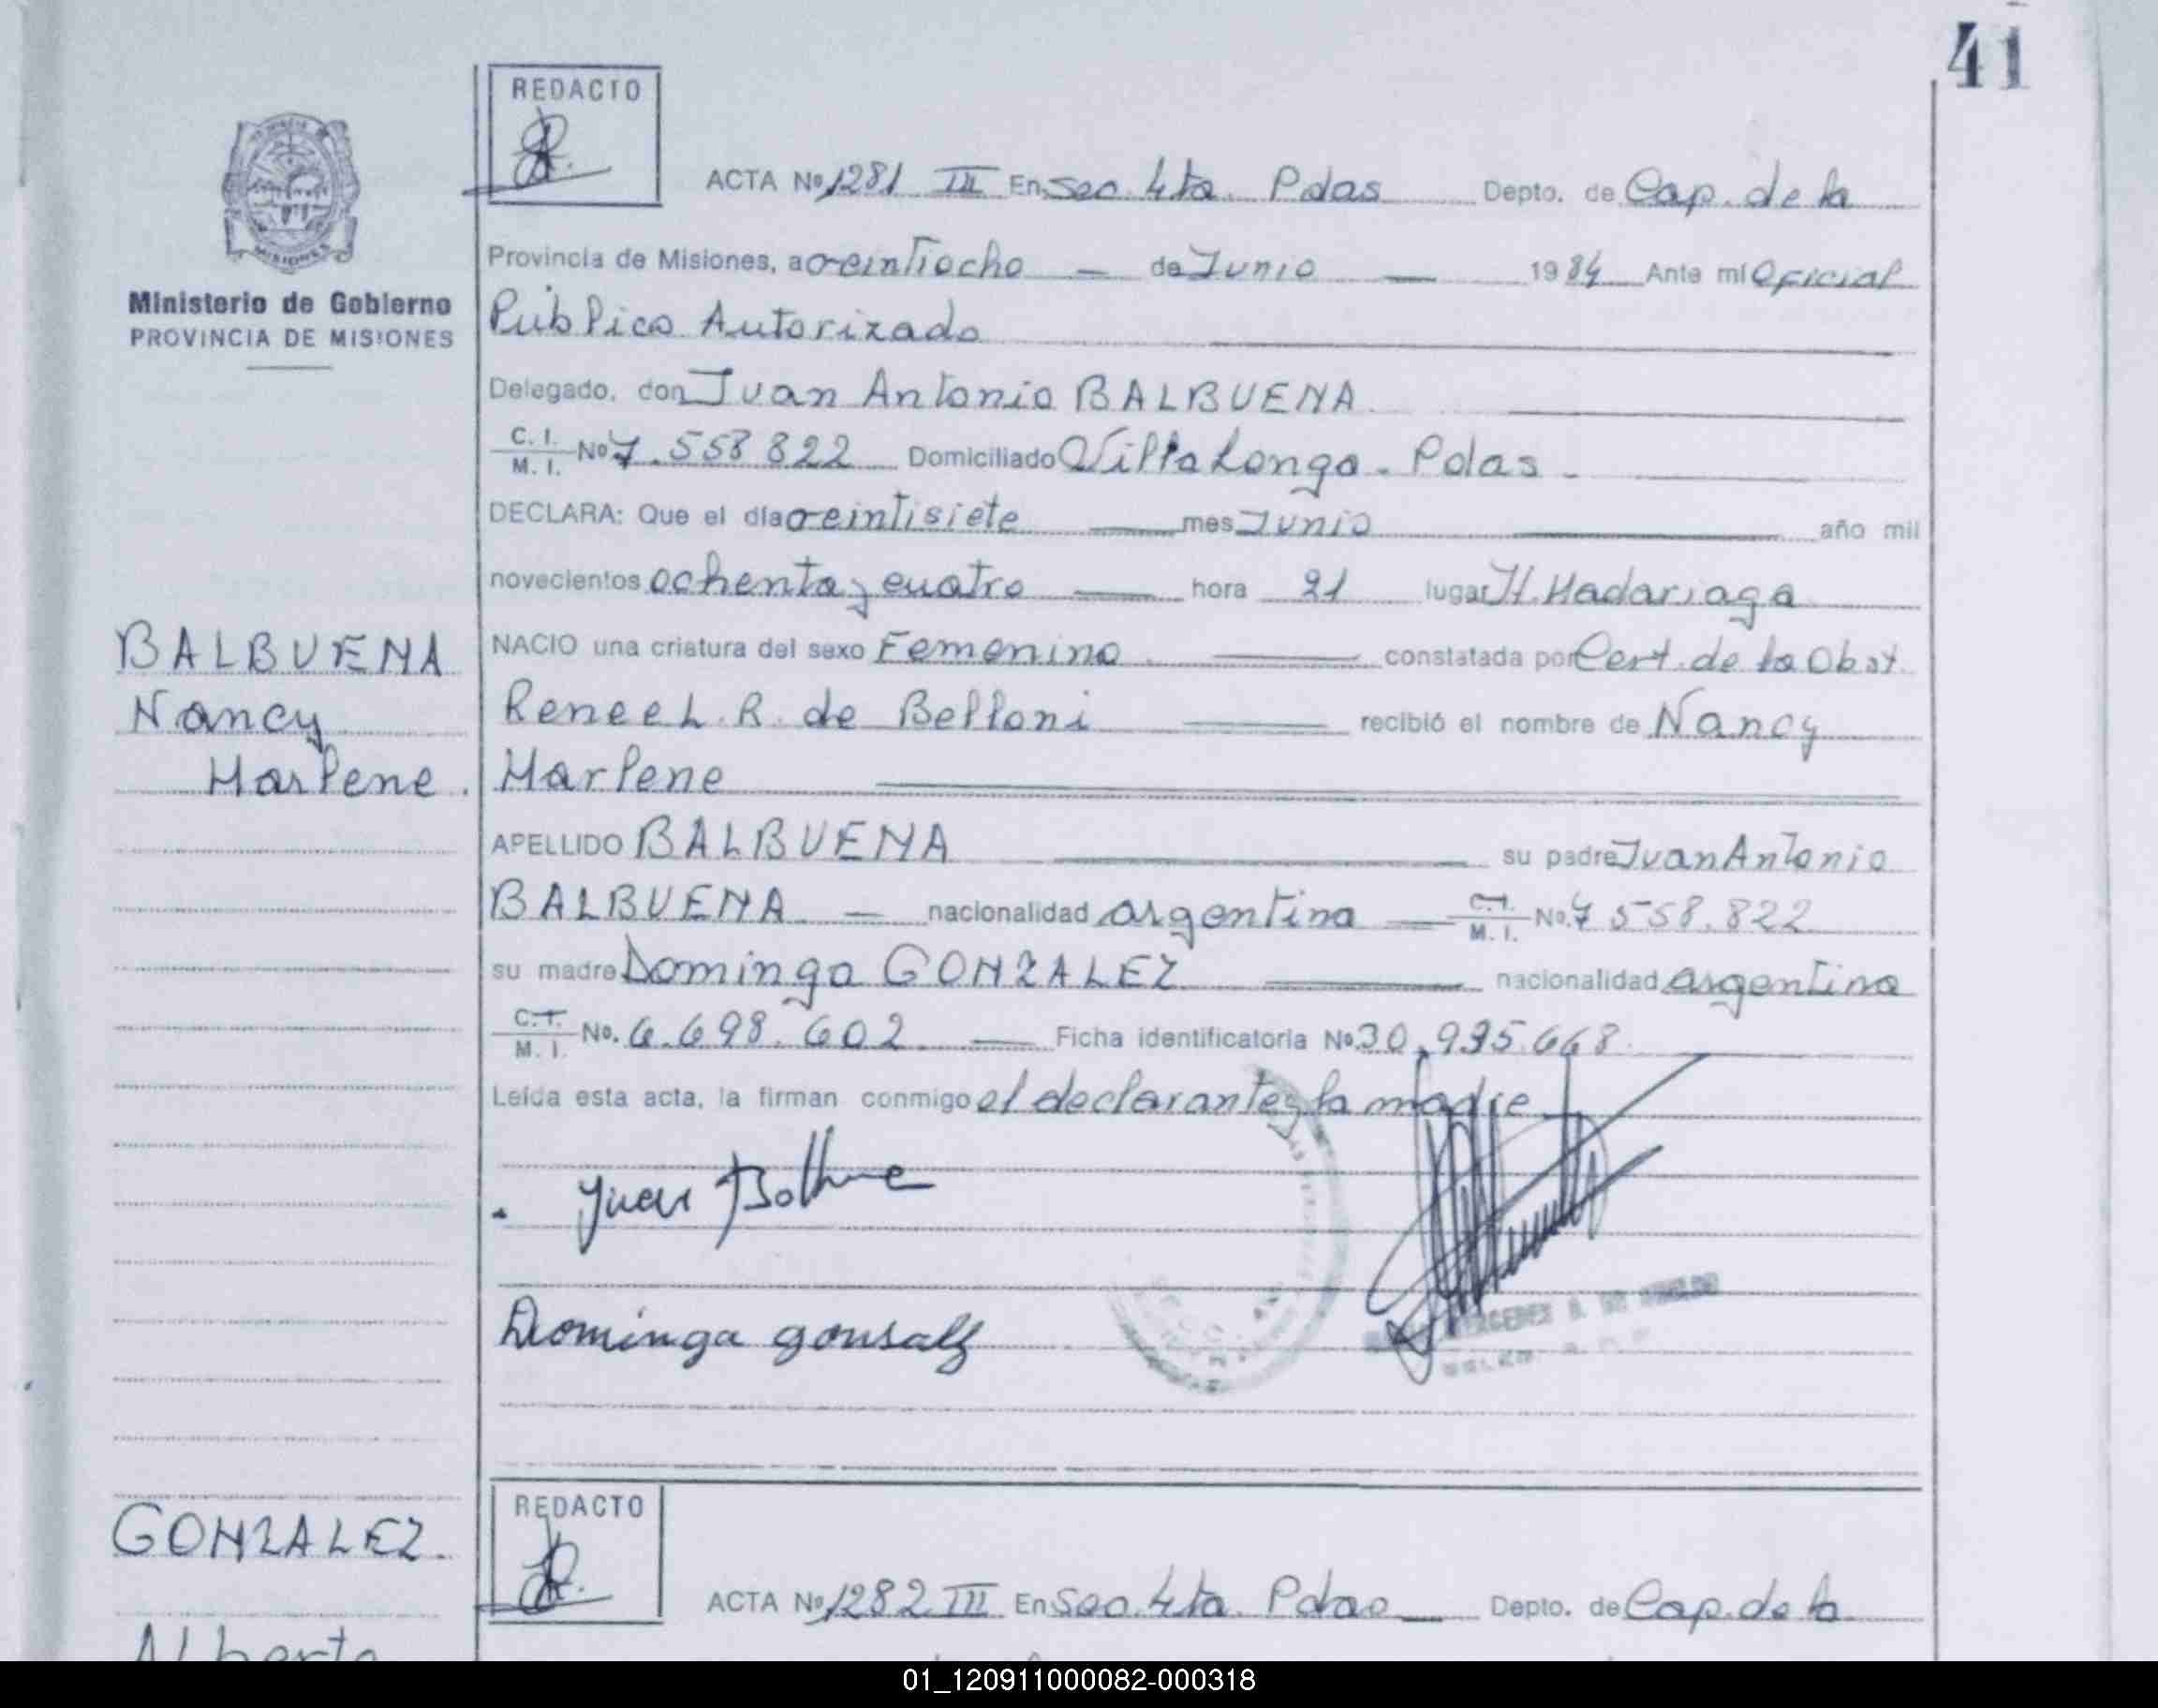 41
REDACTO
ACTA Nº 1281 III En Sec. 4ta. Pdas Depto. de Cap. de la
Provincia de Misiones, a veintiocho — de Junio — 1984 Ante mi Oficial
Ministerio de Gobierno
PROVINCIA DE MISIONES
Público Autorizado
Delegado, don Juan Antonio BALBUENA
C. I. M. I. Nº 7.558 822 Domiciliado Villa Longa. Pdas -
DECLARA: Que el día veintisiete mes Junio año mil
novecientos ochenta y cuatro hora 21 lugar H. Madariaga
BALBUENA
Nancy
Marlene.
NACIO una criatura del sexo Femenino constatada por Cert. de la Obst.
Renee L. R. de Belloni recibió el nombre de Nancy
Marlene
APELLIDO BALBUENA su padre Juan Antonio
BALBUENA — nacionalidad argentina — C. I. M. I. No. 7 558.822
su madre Dominga GONZALEZ nacionalidad argentina
C. I. M. I. No. 6.698.602 — Ficha identificatoria Nº 30.935.668
Leída esta acta, la firman conmigo el declarante y la madre
Juan
Dominga gonsalz
GONZALEZ.
Alberto
REDACTO
ACTA Nº 1282 III En Sec. 4ta. Pdas — Depto. de Cap. de la
01_120911000082-000318